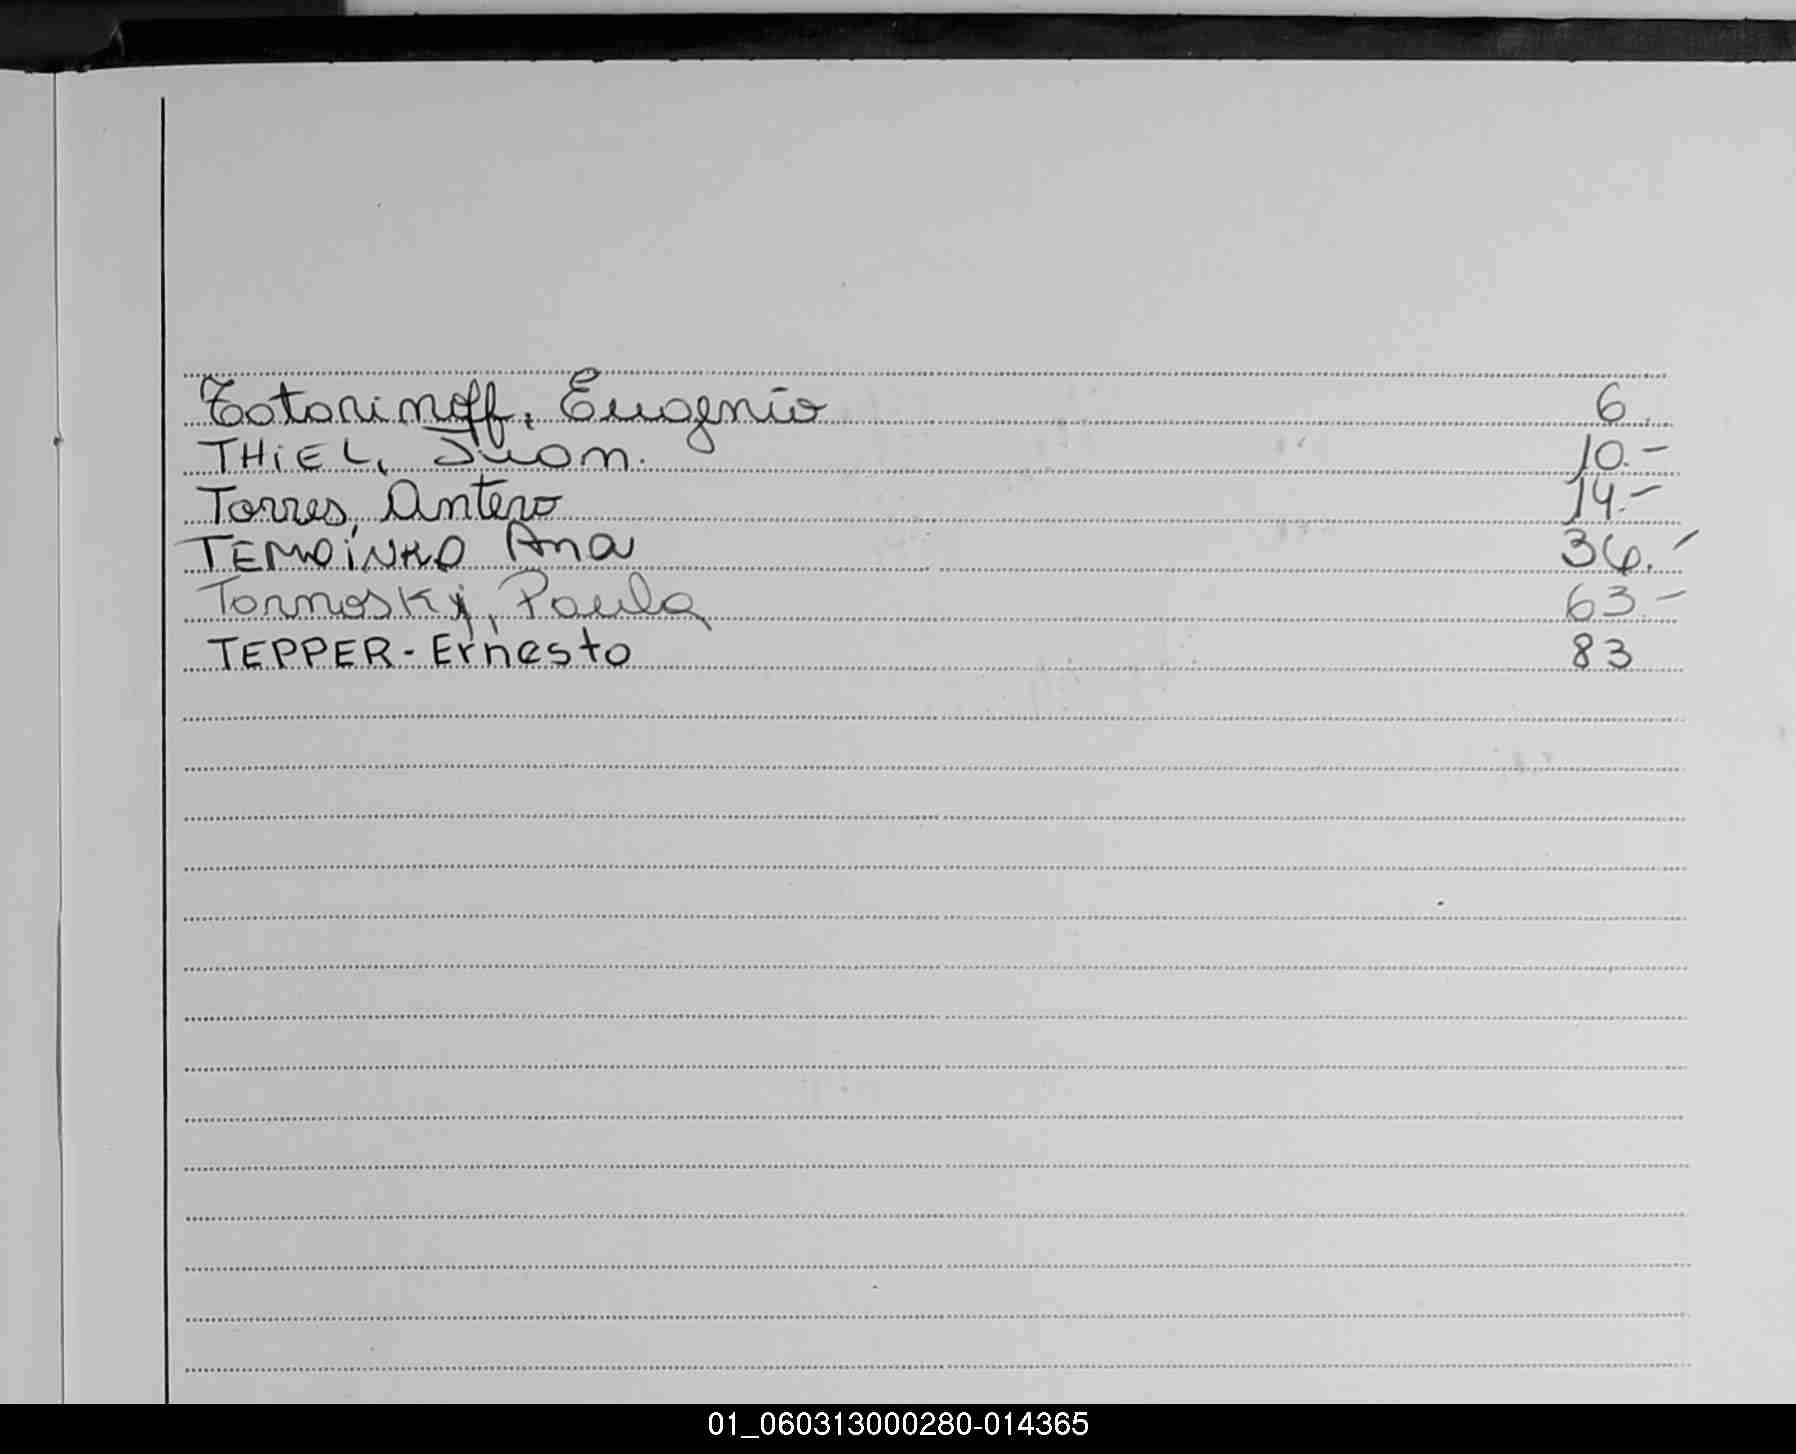 Totorinoff, Eugenio 6.
THiEL, Juan. 10.-
Torres, Antero 14.-
Ana 36.-
Tarnoski, Paula 63.-
TEPPER - Ernesto 83
01_060313000280-014365